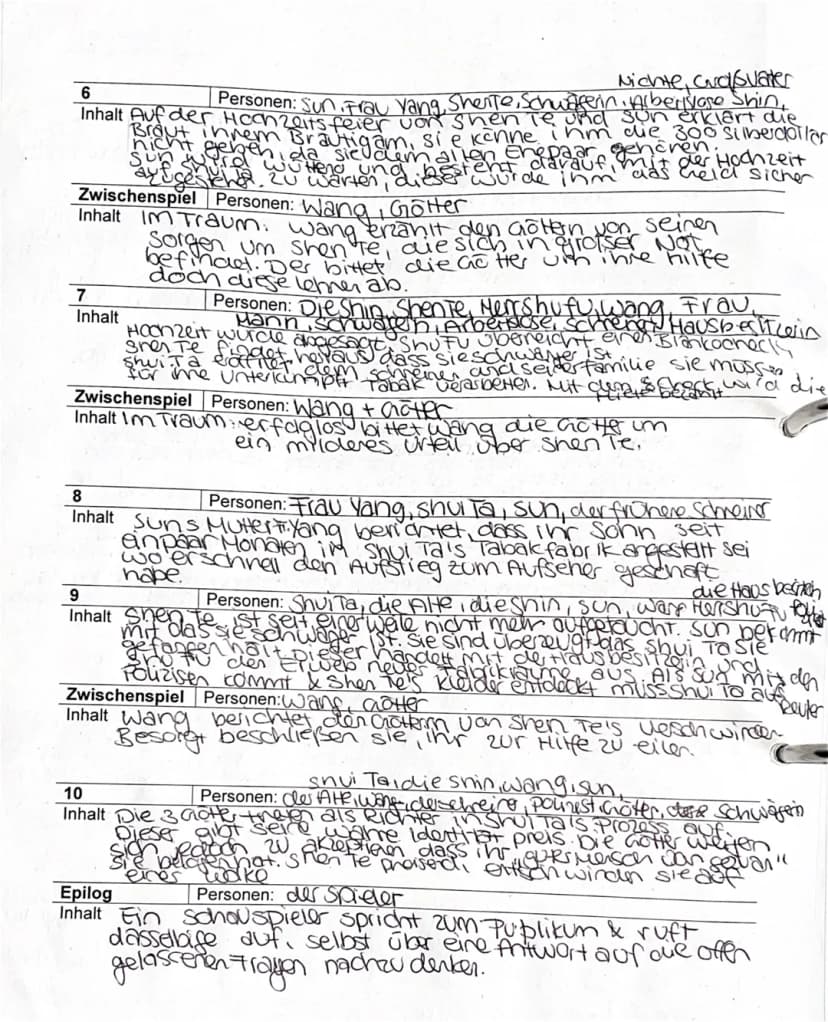 Nichte, Großvater
6 Personen: Sun, Frau Yang, Shen Te, Schwägerin, Arbeitslose Shin,
Inhalt Auf der Hochzeitsfeier von Shen Te und Sun erklärt die
Braut ihrem Bräutigam, sie könne ihm die 300 Silberdollar
nicht geben, da sie dem alten Ehepaar gehören.
Sun wird wütend und besteht darauf, mit der Hochzeit
zu warten, dieser würde ihm das Geld sicher
Zwischenspiel Personen: Wang, Götter
Inhalt Im Traum: Wang erzählt den Göttern von seinen
Sorgen um Shen Te, die sich in großer Not
befindet. Der bittet die Götter um ihre hilfe
doch diese lehnen ab.
7 Personen: Die Shin, Shente, Herr Shufu, Wang, Frau,
Inhalt Mann, Schwägerin, Arbeitslose, Schreiner, Hausbesitzerin
Hochzeit wurde abgesagt. Shu Fu überreicht einen Blankocheck
Shen Te findet heraus dass sie schwanger ist
Shui Ta dem Schreiner und seiner Familie sie müssen
für ihre Unterkumpft Tabak verarbeiten. Mit dem Check wird die
Miete bezahlt
Zwischenspiel Personen: Wang + Götter
Inhalt Im Traum: erfolglos bittet Wang die Götter um
ein milderes Urteil über Shen Te.
8 Personen: Frau Yang, Shui Ta, Sun, der frühere Schreiner
Inhalt Suns Mutter Fr. Yang berichtet, dass ihr Sohn seit
ein paar Monaten im Shui Ta's Tabakfabrik angestellt sei
wo er schnell den Aufstieg zum Aufseher geschaft
habe.
die Hausbesitzerin
9 Personen: Shui Ta, die Alte, die Shin, Sun, Wang Herr Shu Fu
Inhalt Shen Te ist seit einer Weile nicht mehr aufgetaucht. Sun bekommt
mit das sie schwager ist. Sie sind überzeugt das Shui Ta sie
gefangen hält. Dieser handelt mit der Hausbesitzerin und
Shu Fu den Erweb neuer Fabrikräume aus. Als Sun mit den
Polizisen kommt & Shen Te's Kleider entdeckt muss Shui Ta auf
Zwischenspiel Personen: Wang, Götter
Inhalt Wang berichtet den Göttern von Shen Te's Veschwinden
Besorgt beschließen sie, ihr zur Hilfe zu eilen.
Shui Ta, die Shin, Wang, Sun,
10 Personen: der Alte, Wang, der Schreiner, Polizest Götter, Schwägerin
Inhalt Die 3 Götter treten als Richter in Shui Ta's Prozess auf.
Dieser gibt seine wahre Identität preis. Die Götter weigern
sich jedoch zu akzeptieren dass ihr "guter Mensch von Sezuan"
sie belogen hat. Shen Te preisend, entschwinden sie auf
einer Wolke
Epilog Personen: der Spieler
Inhalt Ein Schauspieler spricht zum Publikum & ruft
dasselbige auf, selbst über eine Antwort auf die offen
gelassenen Fragen nachzudenken.